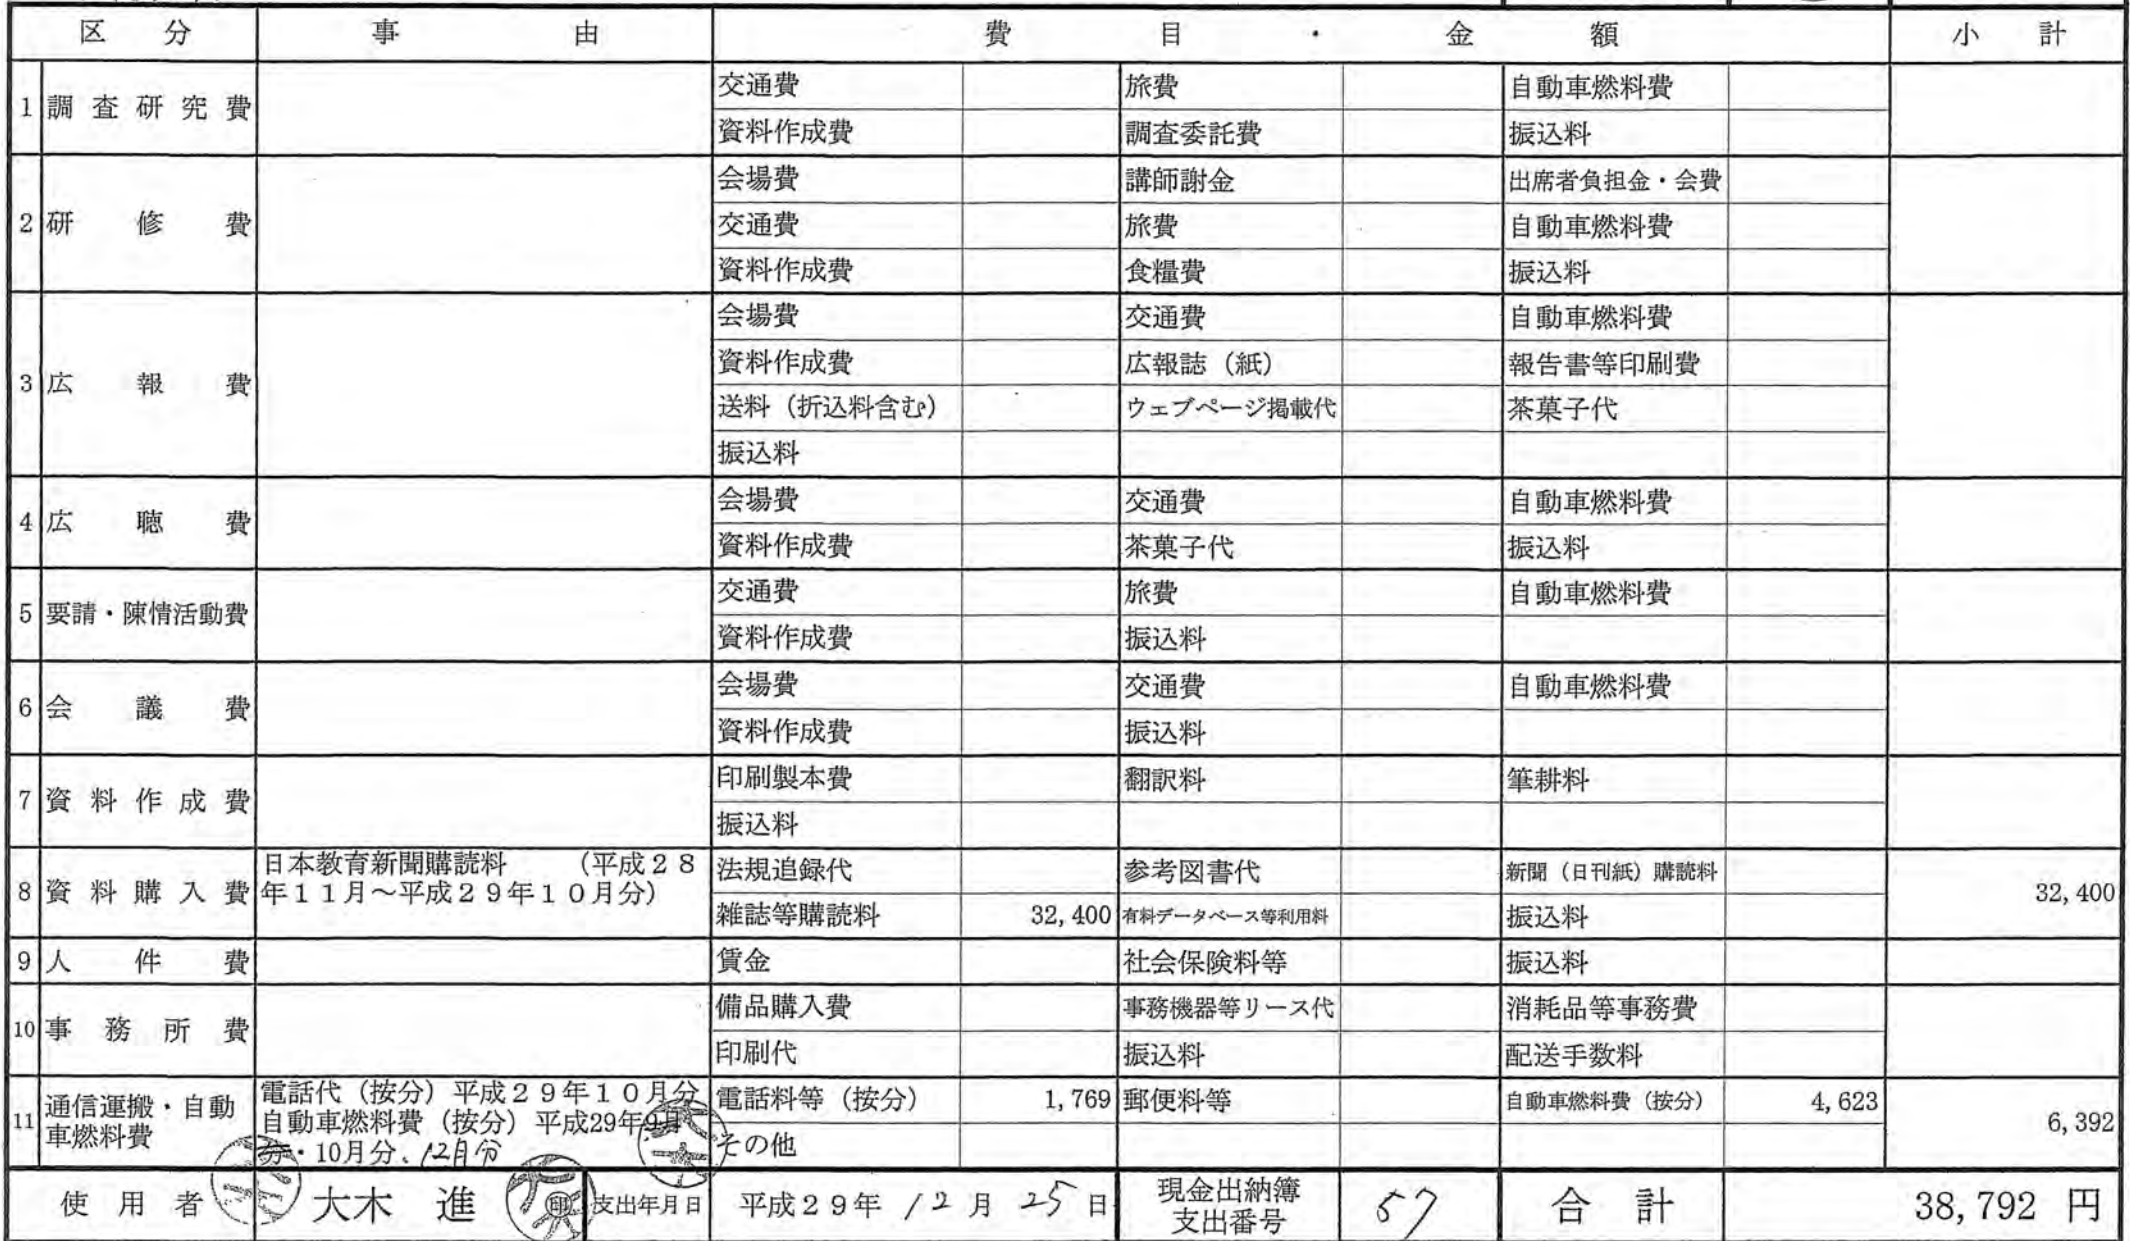 区分 事由 費目・金額 小計
1 調査研究費 交通費 旅費 自動車燃料費
資料作成費 調査委託費 振込料
2 研修費 会場費 講師謝金 出席者負担金・会費
交通費 旅費 自動車燃料費
資料作成費 食糧費 振込料
3 広報費 会場費 交通費 自動車燃料費
資料作成費 広報誌（紙） 報告書等印刷費
送料（折込料含む） ウェブページ掲載代 茶菓子代
振込料
4 広聴費 会場費 交通費 自動車燃料費
資料作成費 茶菓子代 振込料
5 要請・陳情活動費 交通費 旅費 自動車燃料費
資料作成費 振込料
6 会議費 会場費 交通費 自動車燃料費
資料作成費 振込料
7 資料作成費 印刷製本費 翻訳料 筆耕料
振込料
8 資料購入費 日本教育新聞購読料 （平成２８
年１１月～平成２９年１０月分）
法規追録代 参考図書代 新聞（日刊紙）購読料
雑誌等購読料 32,400 有料データベース等利用料 振込料
32,400
9 人件費 賃金 社会保険料等 振込料
10 事務所費 備品購入費 事務機器等リース代 消耗品等事務費
印刷代 振込料 配送手数料
11 通信運搬・自動
車燃料費
電話代（按分）平成２９年１０月分
自動車燃料費（按分）平成29年9月
分・10月分、12月分
電話料等（按分） 1,769 郵便料等 自動車燃料費（按分） 4,623
その他
6,392
使用者 大木 進 印 支出年月日 平成２９年 12 月 25 日 現金出納簿
支出番号 57 合計 38,792 円